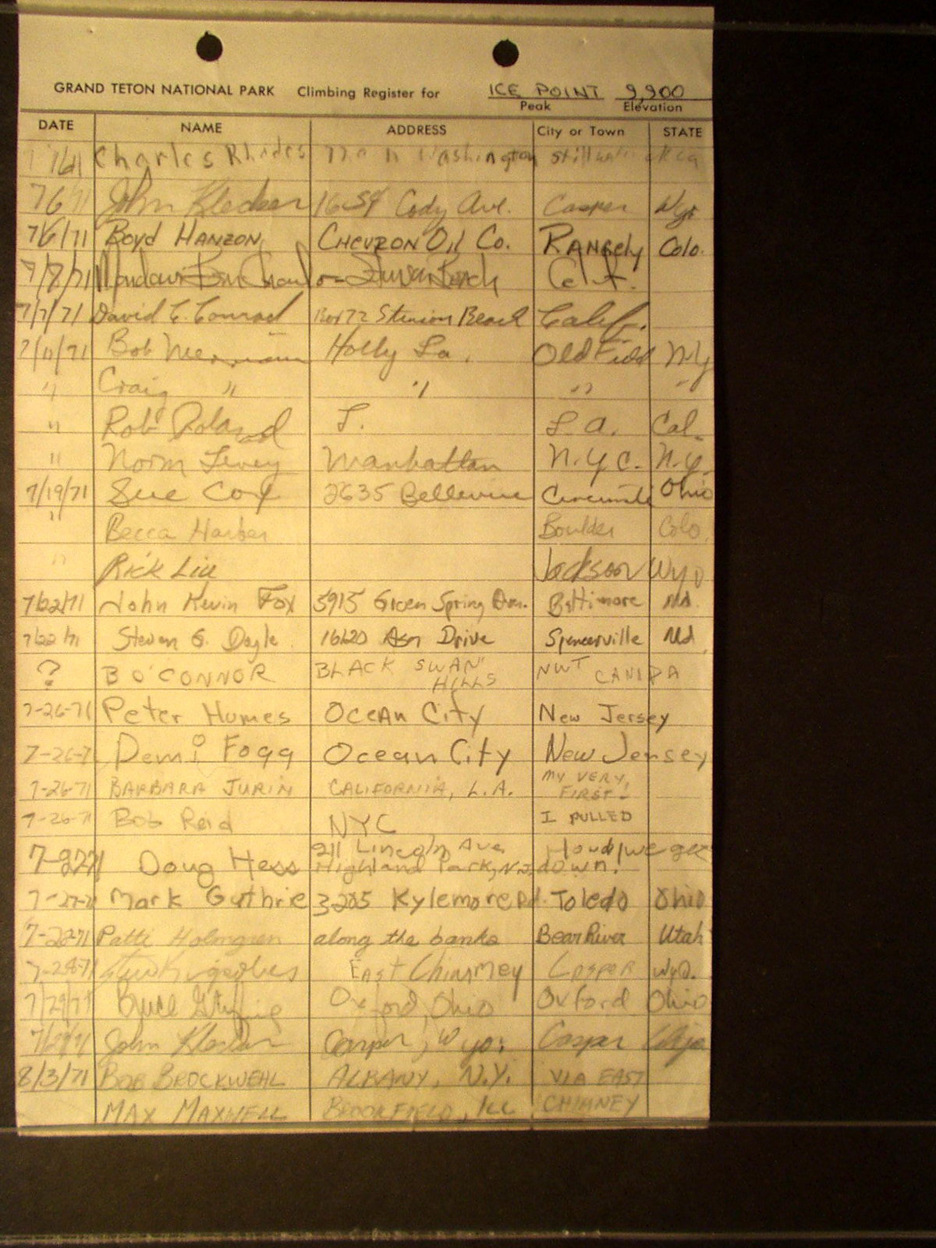 GRAND TETON NATIONAL PARK Climbing Register for ICE POINT 9,900
Peak Elevation
DATE NAME ADDRESS City or Town STATE
Charles Rhodes Washington
7/6/71 John Casper Wyo
7/6/71 BOYD HANZON CHEVRON OIL CO. RANGELY COLO.
7/7/71 Calif.
7/7/71 David E. Conrad Box 72 Stinson Beach Calif.
7/11/71 Bob Holly La. Old Field N.Y
" Craig " " " "
" Rob Roland L. L.A. Cal.
" Norm Levey Manhattan N.Y.C. N.Y.
7/19/71 Sue Cox 2635 Bellevue Cincinnati Ohio
" Becca Harber Boulder Colo.
" Rick Liu Jackson Wyo
7/22/71 John Kevin Fox 5915 Green Spring Baltimore Md.
7/22/71 Steven G. Doyle 16620 Drive Spencerville Md.
? B O'CONNOR BLACK SWAN HILLS NWT CANADA
7-26-71 Peter Humes Ocean City New Jersey
7-26-71 Demi Fogg Ocean City New Jersey
7-26-71 BARBARA JURIN CALIFORNIA, L.A. MY VERY FIRST!
7-26-71 Bob Reid NYC I PULLED
Doug Hess 911 Lincoln Ave Highland Park, N.J. down.
7-27-71 Mark Guthrie 3205 Kylemore Rd. Toledo Ohio
Patti Holmgren along the banks Bear River Utah
EAST CHIMNEY CASPER WYO.
7/29/71 Bruce Oxford, Ohio Oxford Ohio
John Casper, Wyo. Casper
8/3/71 BOB BROCKWEHL ALBANY, N.Y. VIA EAST
MAX MAXWELL BROOKFIELD, ILL CHIMNEY